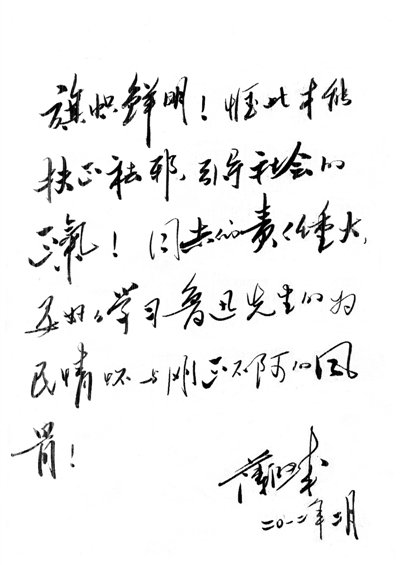 旗帜鲜明！惟此才能
扶正祛邪，引导社会的
正氣！同志们责任重大，
要好好学习鲁迅先生的为
民情怀与刚正不阿的风
骨！
薄熙来
二〇一二年二月